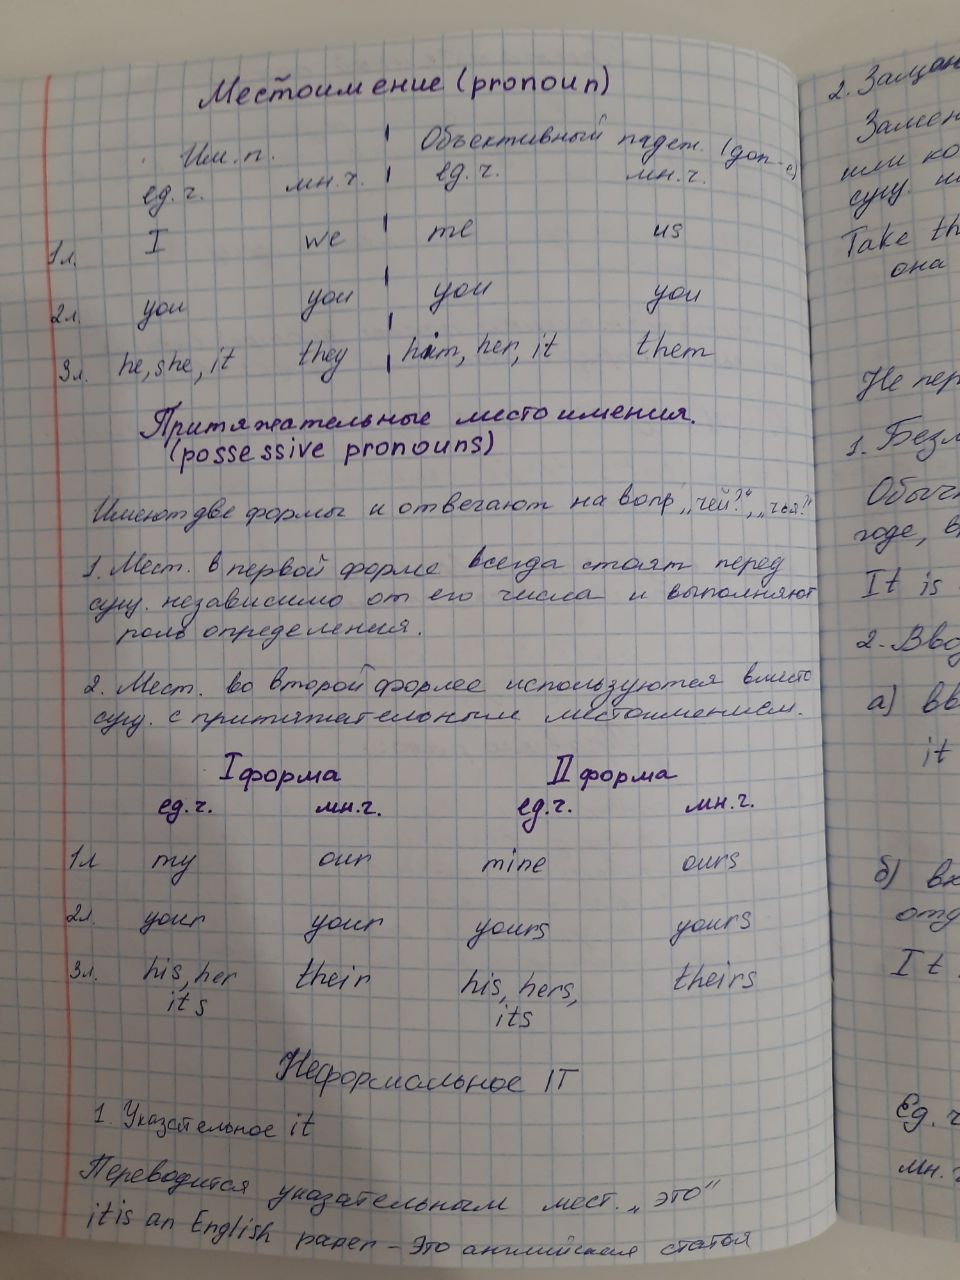 Местоимение (pronoun)
Им.п. Объективный падеж. (доп-е)
ед.ч. мн.ч. ед.ч. мн.ч.
1л. I we me us
2л. you you you you
3л. he, she, it they him, her, it them
Притяжательные местоимения.
(possessive pronouns)
Имеют две формы и отвечают на вопр „чей?“, „чья?“
1. Мест. в первой форме всегда стоят перед
сущ. независимо от его числа и выполняют
роль определения.
2. Мест. во второй форме используются вместо
сущ. с притяжательным местоимением.
I форма II форма
ед.ч. мн.ч. ед.ч. мн.ч.
1л my our mine ours
2л. your your yours yours
3л. his, her their his, hers, theirs
its its
Неформальное IT
1. Указательное it
Переводится указательным мест. „это“
it is an English paper – Это английская статья
2.
Замен
или
сущ.
Take
она
Не пер
1.
Обычн
годе,
It is
2. Ввод
а) вв
it
б)
отд
It
Ед. ч
мн.